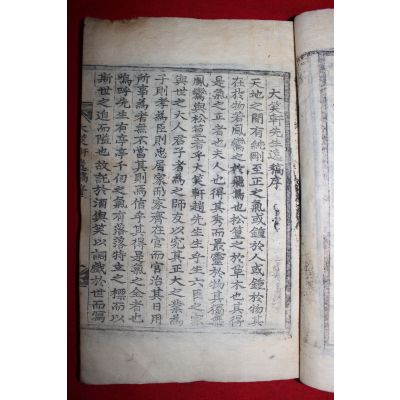 大笑軒先生逸稿序
天地之間有純剛至正之氣或鍾於人或鍾於物其
在於物若鳳鸞之於飛禽也松篁之於草木也其得
是氣之正者也夫人也得其秀而最靈於物其獨無
鳳鸞與松篁者乎大笑軒趙先生生乎六臣之家
與世之大人君子者爲之師友以究其正大之業爲
子則孝爲臣則忠居家而家齊在官而官治其日用
所事爲者無不當其則焉信乎其得是氣之全者也
嗚呼先生有亭亭千仞之氣有落落特立之標而以
斯世之迫而隘也故託於酒與笑以詞戲於世而寫
大笑軒逸稿序